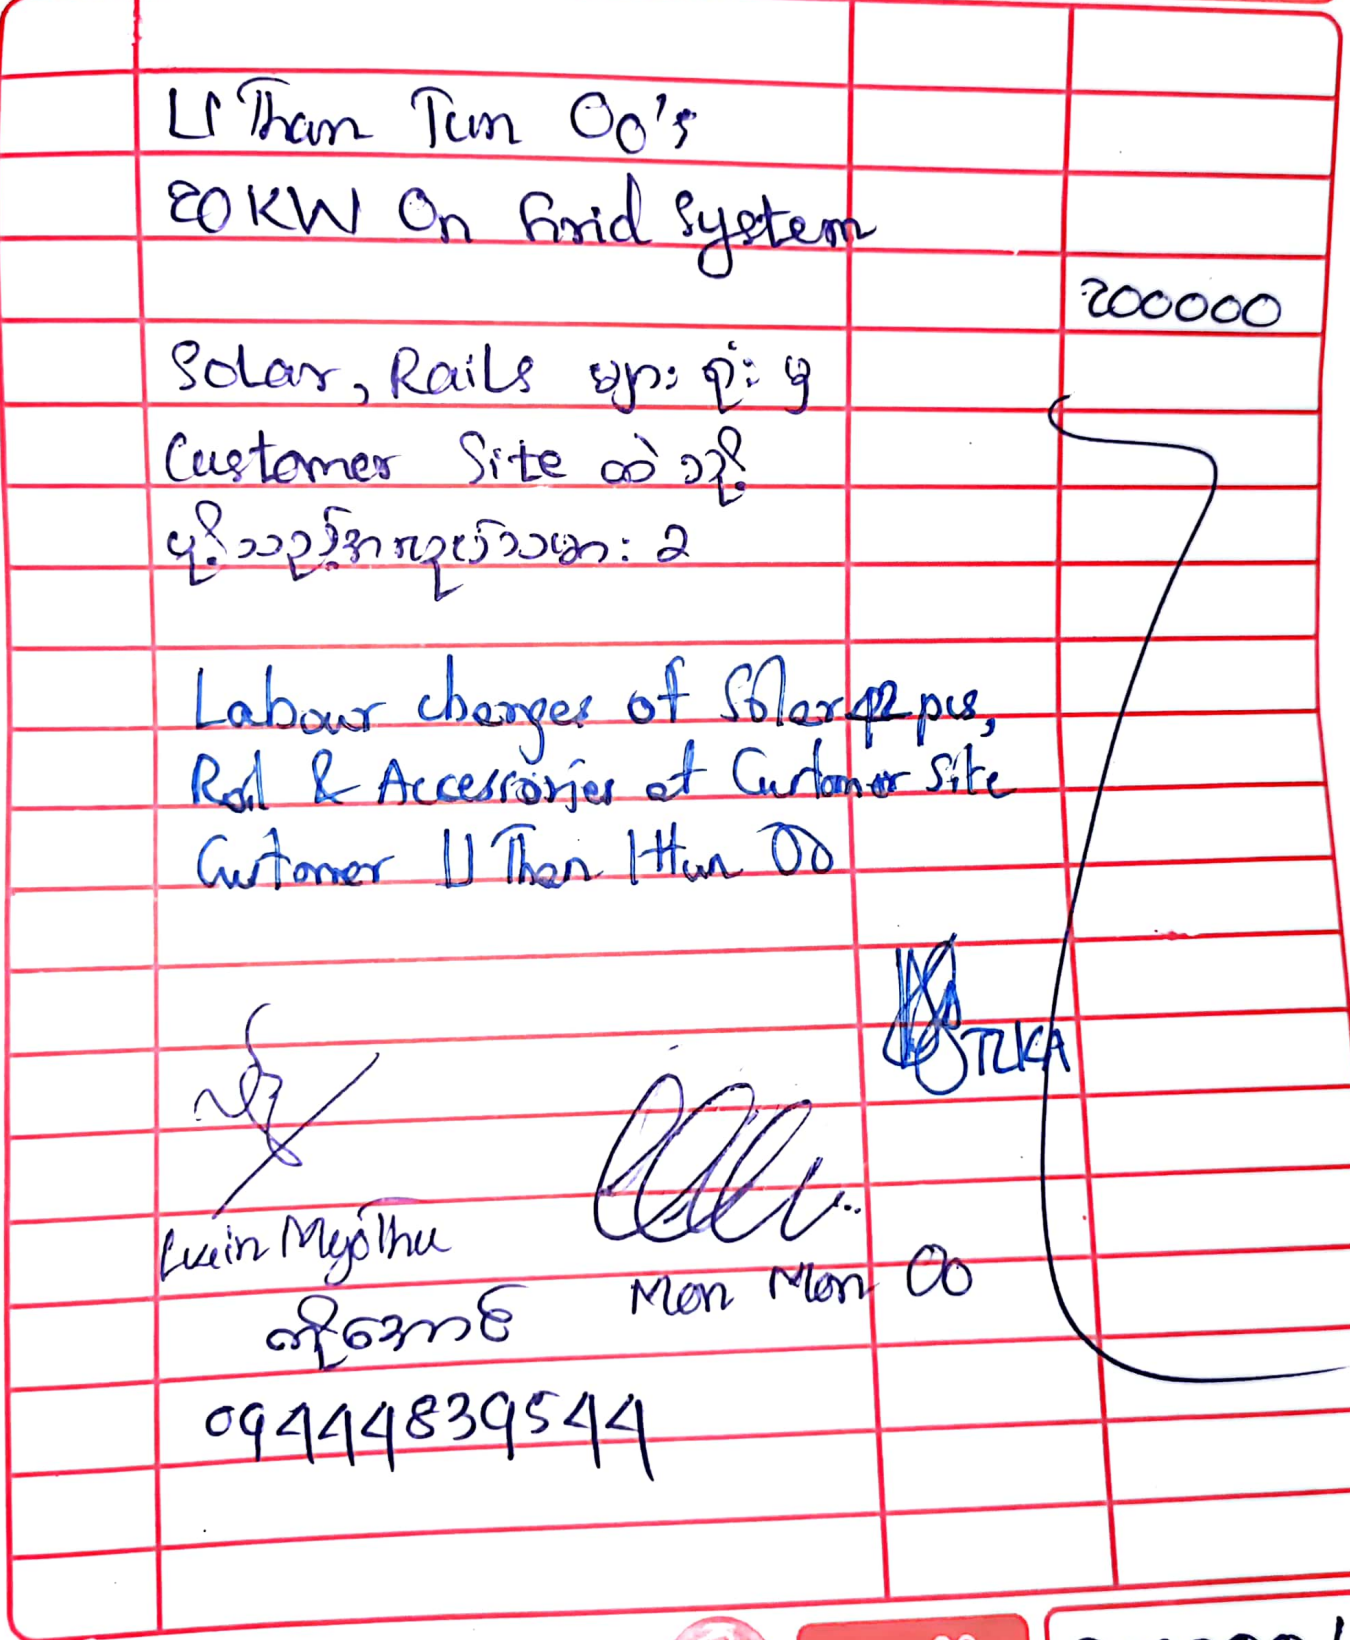 U Than Tun Oo's
20KW On Grid System
200000
Solar, Rails များ ရုံးမှ
Customer Site ထဲသို့
ပို့သည့်အလုပ်သမား ခ
Labour charges of Solar 42 pcs,
Rail & Accessories at Customer Site
Customer U Than Htun Oo
TZKA
Lwin Myo Thu
Mon Mon Oo
ကိုအောင်
09444839544